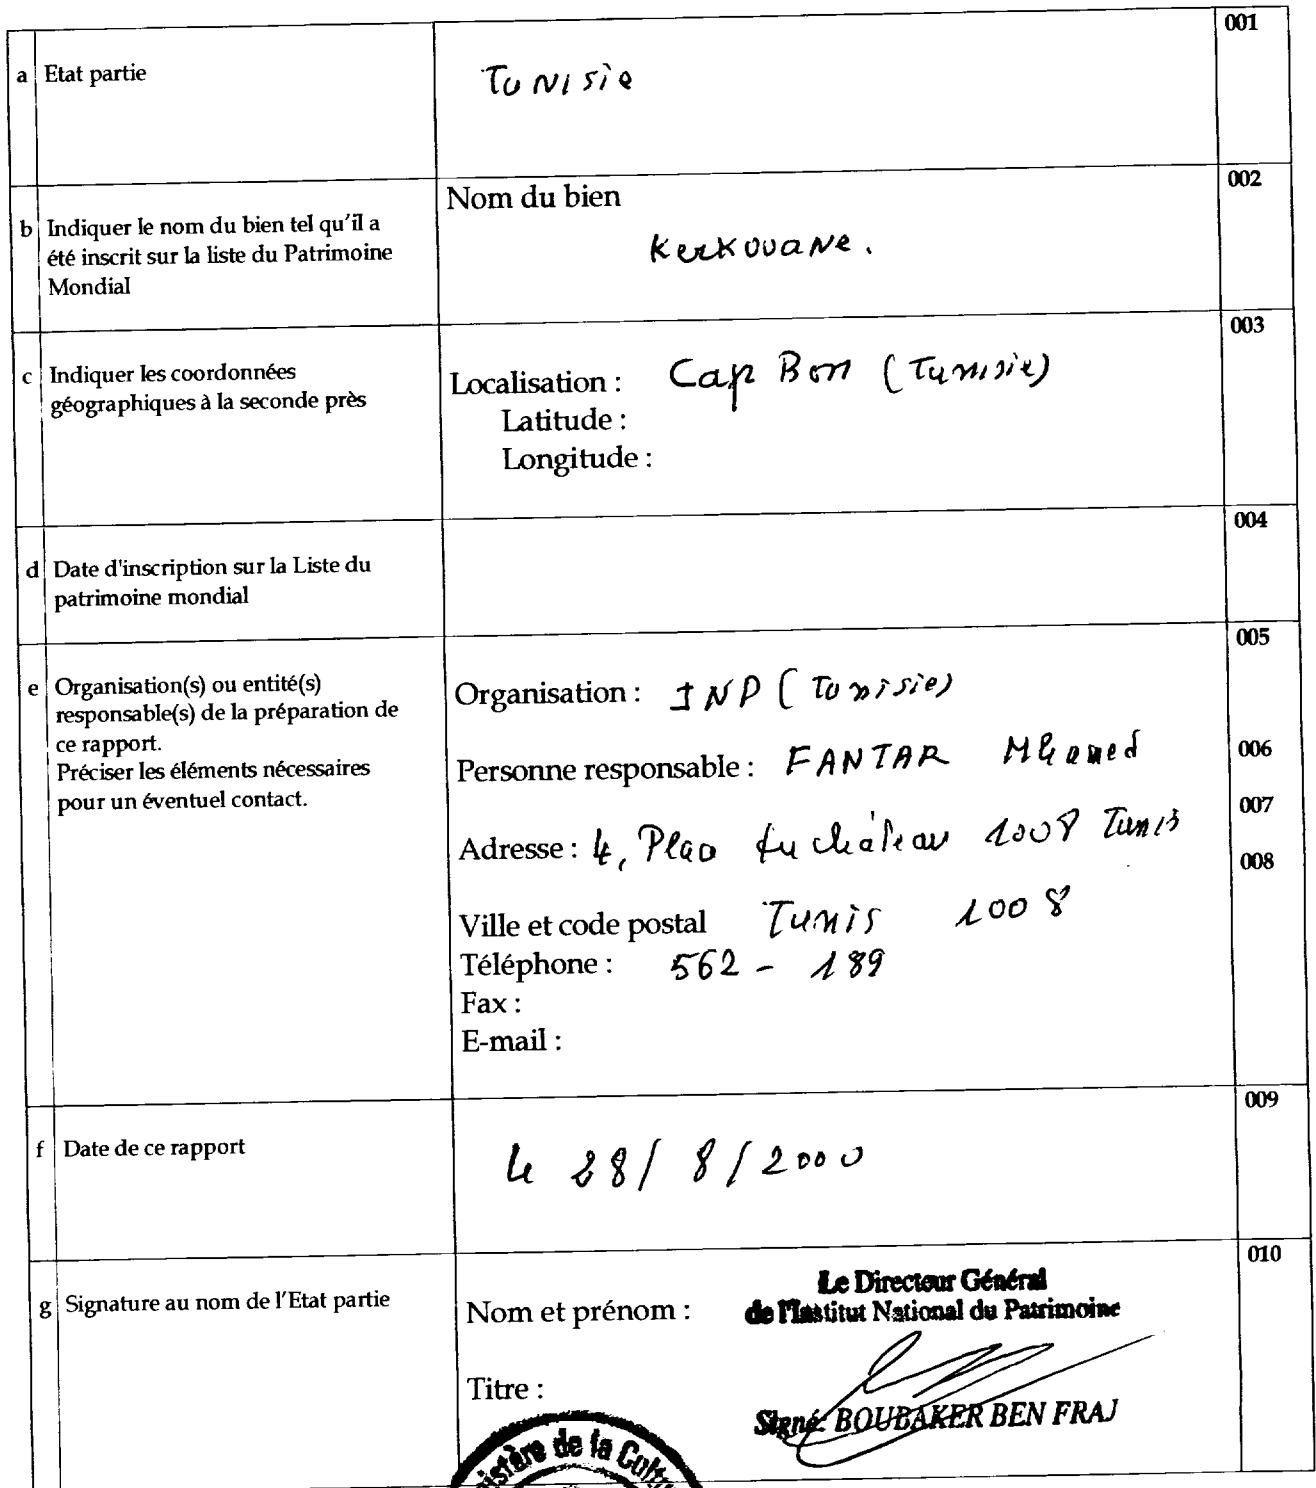 001
a Etat partie
Tunisie
002
b Indiquer le nom du bien tel qu'il a
été inscrit sur la liste du Patrimoine
Mondial
Nom du bien
Kerkouane.
003
c Indiquer les coordonnées
géographiques à la seconde près
Localisation : Cap Bon (Tunisie)
Latitude :
Longitude :
004
d Date d'inscription sur la Liste du
patrimoine mondial
005
e Organisation(s) ou entité(s)
responsable(s) de la préparation de
ce rapport.
Préciser les éléments nécessaires
pour un éventuel contact.
Organisation : INP (Tunisie)
Personne responsable : FANTAR Mhamed
006
007
Adresse : 4, Place du château 1008 Tunis
008
Ville et code postal Tunis 1008
Téléphone : 562 - 189
Fax :
E-mail :
009
f Date de ce rapport
Le 28/8/2000
010
g Signature au nom de l'Etat partie
Nom et prénom :
Le Directeur Général
de l'Institut National du Patrimoine
Titre :
Signé: BOUBAKER BEN FRAJ
istère de la Cultu